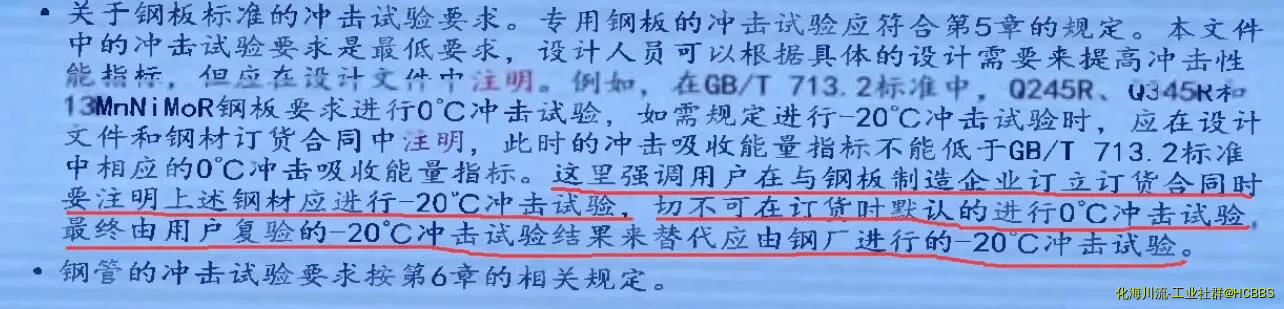 • 关于钢板标准的冲击试验要求。专用钢板的冲击试验应符合第5章的规定。本文件
中的冲击试验要求是最低要求，设计人员可以根据具体的设计需要来提高冲击性
能指标，但应在设计文件中注明。例如，在GB/T 713.2标准中，Q245R、Q345R和
13MnNiMoR钢板要求进行0℃冲击试验，如需规定进行-20℃冲击试验时，应在设计
文件和钢材订货合同中注明，此时的冲击吸收能量指标不能低于GB/T 713.2标准
中相应的0℃冲击吸收能量指标。这里强调用户在与钢板制造企业订立订货合同时
要注明上述钢材应进行-20℃冲击试验，切不可在订货时默认的进行0℃冲击试验，
最终由用户复验的-20℃冲击试验结果来替代应由钢厂进行的-20℃冲击试验。
• 钢管的冲击试验要求按第6章的相关规定。
化海川流-工业社群@HCBBS